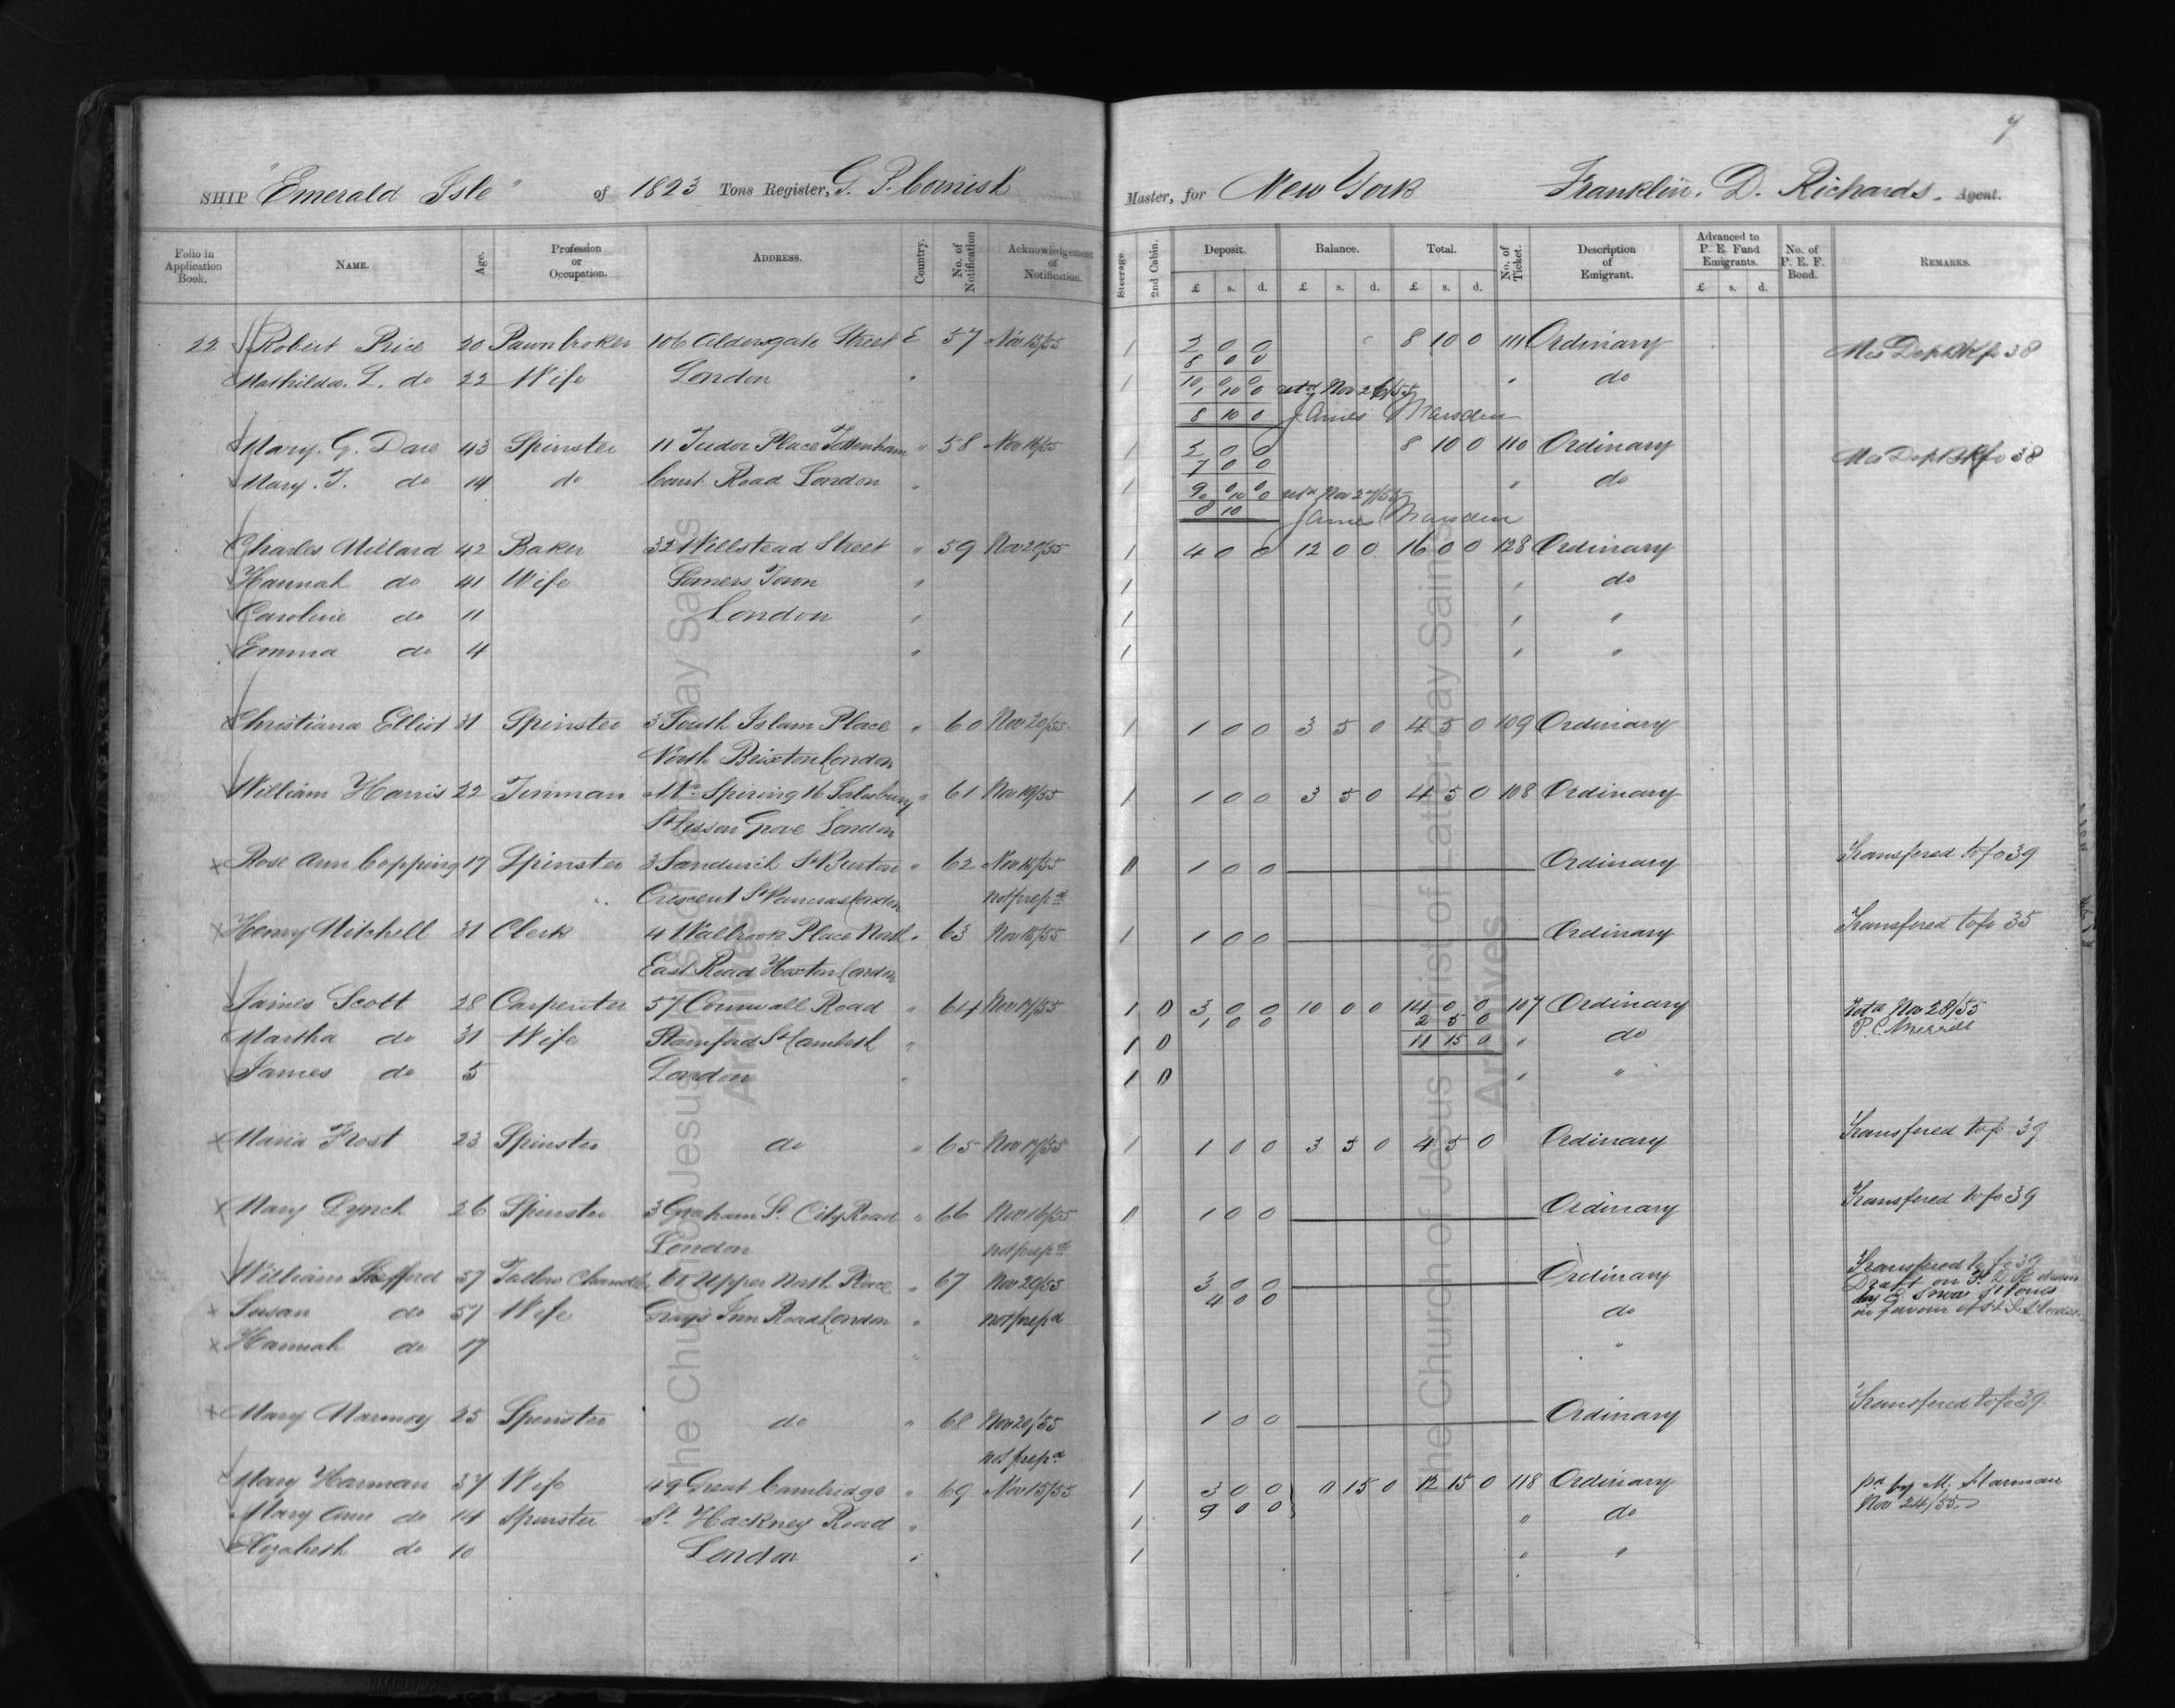 7
SHIP "Emerald Isle" of 1823 Tons Register, G. P. Cornish Master, for New York Franklin. D. Richards. Agent.
Folio in Application Book. NAME. Age. Profession or Occupation. ADDRESS. Country. No. of Notification Acknowledgement of Notification. Steerage. 2nd Cabin. Deposit. Balance. Total. No. of Ticket. Description of Emigrant. Advanced to P. E. Fund Emigrants. No. of P. E. F. Bond. REMARKS.
£ s. d. £ s. d. £ s. d. £ s. d.
22 Robert Price 20 Pawnbroker 106 Aldersgate Street E 57 Nov 13/55 1 2 0 0 8 10 0 111 Ordinary Mis Dep Bk fo 38
8 0 0
Mathilda. L. do 22 Wife London " 1 10 0 0 " do
1 10 0 retd Nov 26/55
8 10 0 James Marsden
Mary. G. Dare 43 Spinster 11 Tudor Place Tottenham " 58 Nov 16/55 1 2 0 0 8 10 0 110 Ordinary Mis Dep Bk fo 38
7 0 0
Mary. T. do 14 do Court Road London " 1 9 0 0 " do
10 0 retd Nov 27/55
8 10 James Marsden
Charles Millard 42 Baker 32 Willstead Street " 59 Nov 20/55 1 4 0 0 12 0 0 16 0 0 128 Ordinary
Hannah do 41 Wife Somers Town " 1 " do
Caroline do 11 London " 1 " "
Emma do 4 " 1 " "
Christiana Elliot 31 Spinster 3 South Islam Place " 60 Nov 20/55 1 1 0 0 3 5 0 4 5 0 109 Ordinary
North Brixton London
William Harris 22 Tinman Mr Spiring 16 Salisbury " 61 Nov 19/55 1 1 0 0 3 5 0 4 5 0 108 Ordinary
St Lisson Grove London
Rose Ann Copping 17 Spinster 3 Sandwich St Burton " 62 Nov 15/55 0 1 0 0 Ordinary Transfered to fo 39
Crescent St Pancras London not prepd
Henry Mitchell 31 Clerk 4 Walbrook Place North " 63 Nov 15/55 1 1 0 0 Ordinary Transfered to fo 35
East Road Hoxton London
James Scott 28 Carpenter 57 Cornwall Road " 64 Nov 17/55 1 0 3 0 0 10 0 0 14 0 0 107 Ordinary retd Nov 28/55
1 0 0 2 5 0 P. C. Merrill
Martha do 31 Wife Stamford St Lambeth " 1 0 11 15 0 " do
James do 5 London " 1 0 " "
Maria Frost 23 Spinster do " 65 Nov 17/55 1 1 0 0 3 5 0 4 5 0 Ordinary Transfered to fo 39
Mary Lynch 26 Spinster 3 Graham St. City Road " 66 Nov 16/55 0 1 0 0 Ordinary Transfered to fo 39
London not prepd
William Shefford 57 Tallow Chandler 61 Upper North Place " 67 Nov 20/55 3 0 0 Ordinary Transfered to fo 39
4 0 0 Draft on F. D. R. drawn
Susan do 57 Wife Grays Inn Road London " not prepd do by
in favour of
Hannah do 17 " "
Mary Marmoy 25 Spinster do " 68 Nov 20/55 1 0 0 Ordinary Transfered to fo 39
not prepd
Mary Harman 37 Wife 49 Great Cambridge " 69 Nov 15/55 1 3 0 0 0 15 0 12 15 0 118 Ordinary pd by M. Harman
9 0 0 Nov 24/55
Mary Ann do 14 Spinster St Hackney Road " 1 " do
Elizabeth do 10 London " 1 " "
The Church of Jesus Christ of Latter-day Saints
Archives
The Church of Jesus Christ of Latter-day Saints
Archives